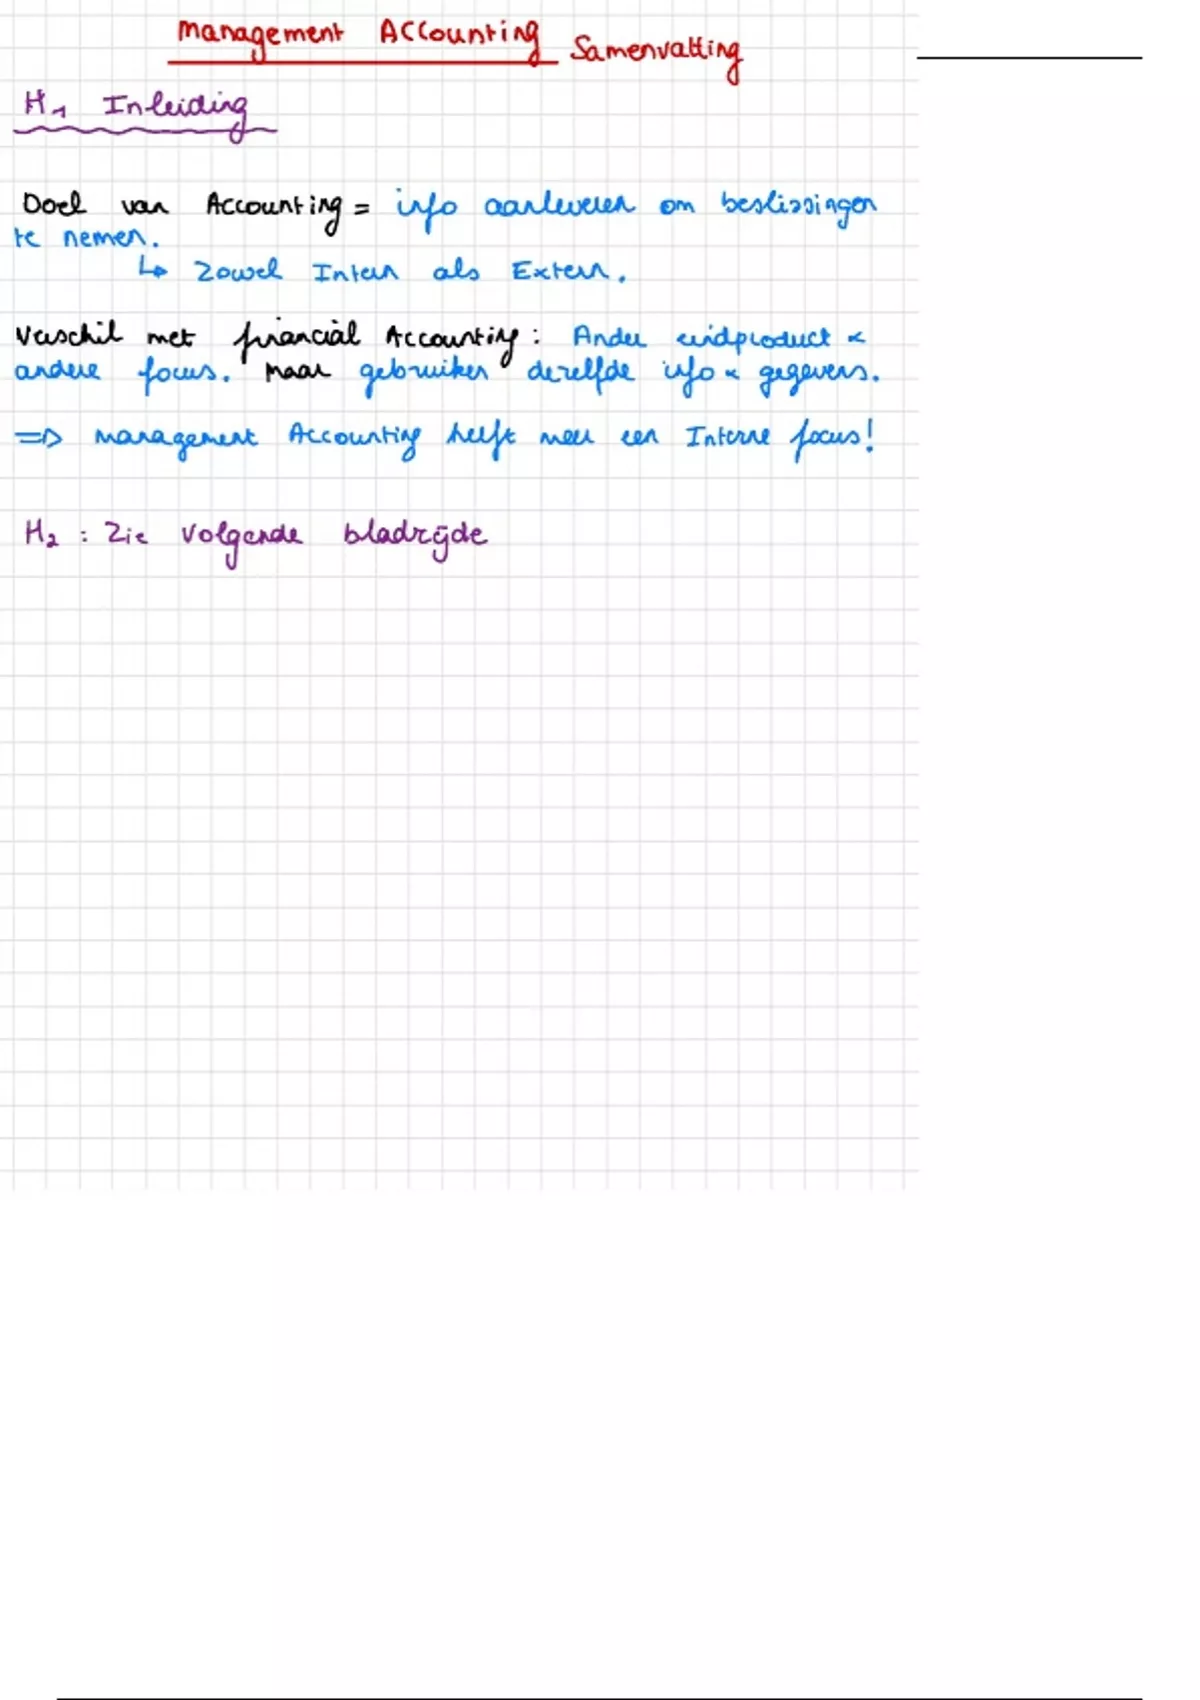 Management Accounting Samenvatting
H1 Inleiding
Doel van Accounting = info aanleveren om beslissingen
te nemen.
↳ Zowel Intern als Extern.
Verschil met financial Accounting: Ander eindproduct &
andere focus. Maar gebruiken dezelfde info & gegevens.
=> Management Accounting heeft meer een Interne focus!
H2 : Zie volgende bladzijde